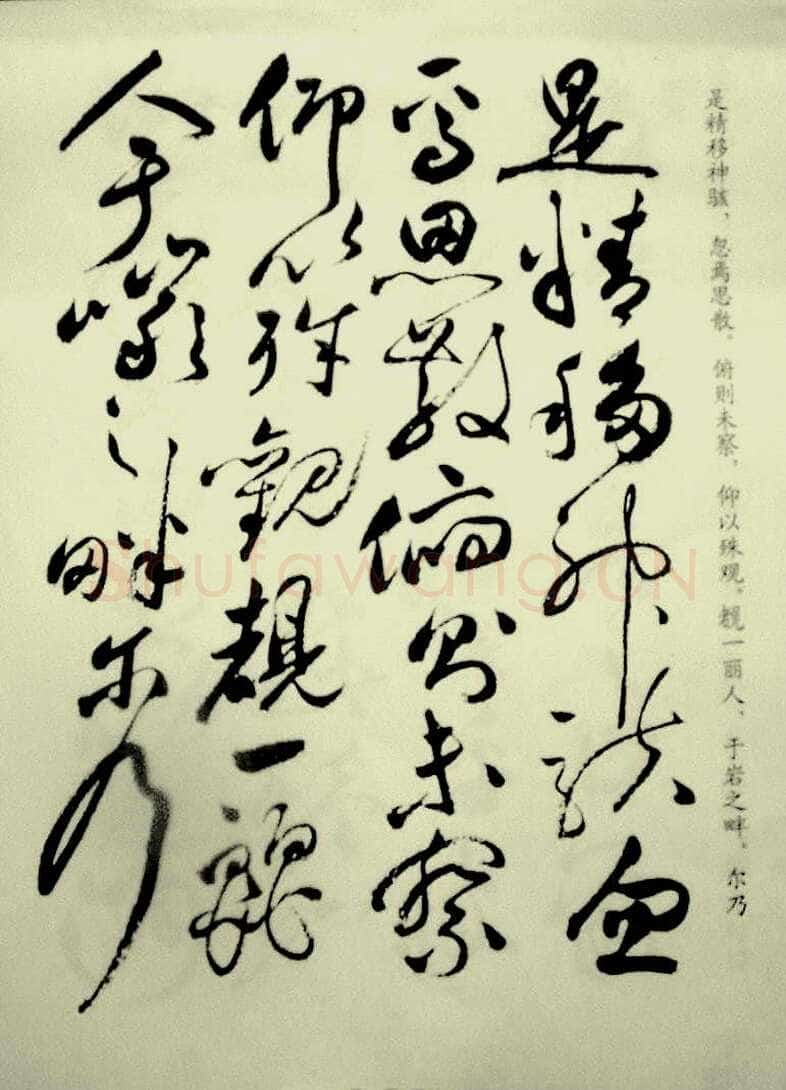 是精移神骇，忽焉思散。俯则未察，仰以殊观。覩一丽人，于岩之畔。尔乃
是精移神駭忽
焉思散俯則未察
仰以殊觀覩一麗
人于巖之畔尔乃
Shufawang.CN